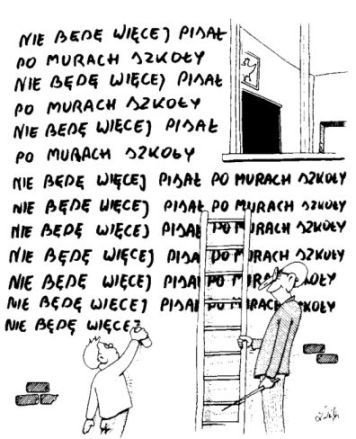 NIE BĘDĘ WIĘCEJ PISAŁ
PO MURACH SZKOŁY
NIE BĘDĘ WIĘCEJ PISAŁ
PO MURACH SZKOŁY
NIE BĘDĘ WIĘCEJ PISAŁ
PO MURACH SZKOŁY
NIE BĘDĘ WIĘCEJ PISAŁ PO MURACH SZKOŁY
NIE BĘDĘ WIĘCEJ PISAŁ PO MURACH SZKOŁY
NIE BĘDĘ WIĘCEJ PISAŁ PO MURACH SZKOŁY
NIE BĘDĘ WIĘCEJ PISAŁ PO MURACH SZKOŁY
NIE BĘDĘ WIĘCEJ PISAŁ PO MURACH SZKOŁY
NIE BĘDĘ WIĘCEJ PISAŁ PO MURACH SZKOŁY
NIE BĘDĘ WIĘCEJ